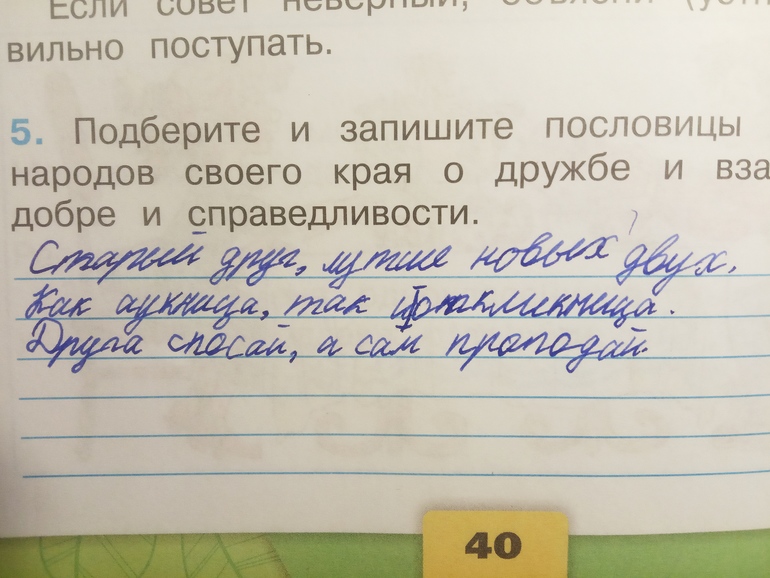 Если совет неверный, объясни (устн
вильно поступать.
5. Подберите и запишите пословицы
народов своего края о дружбе и вза
добре и справедливости.
Старый друг, лутше новых двух.
Как аукница, так и откликница.
Друга спосай, а сам проподай.
40